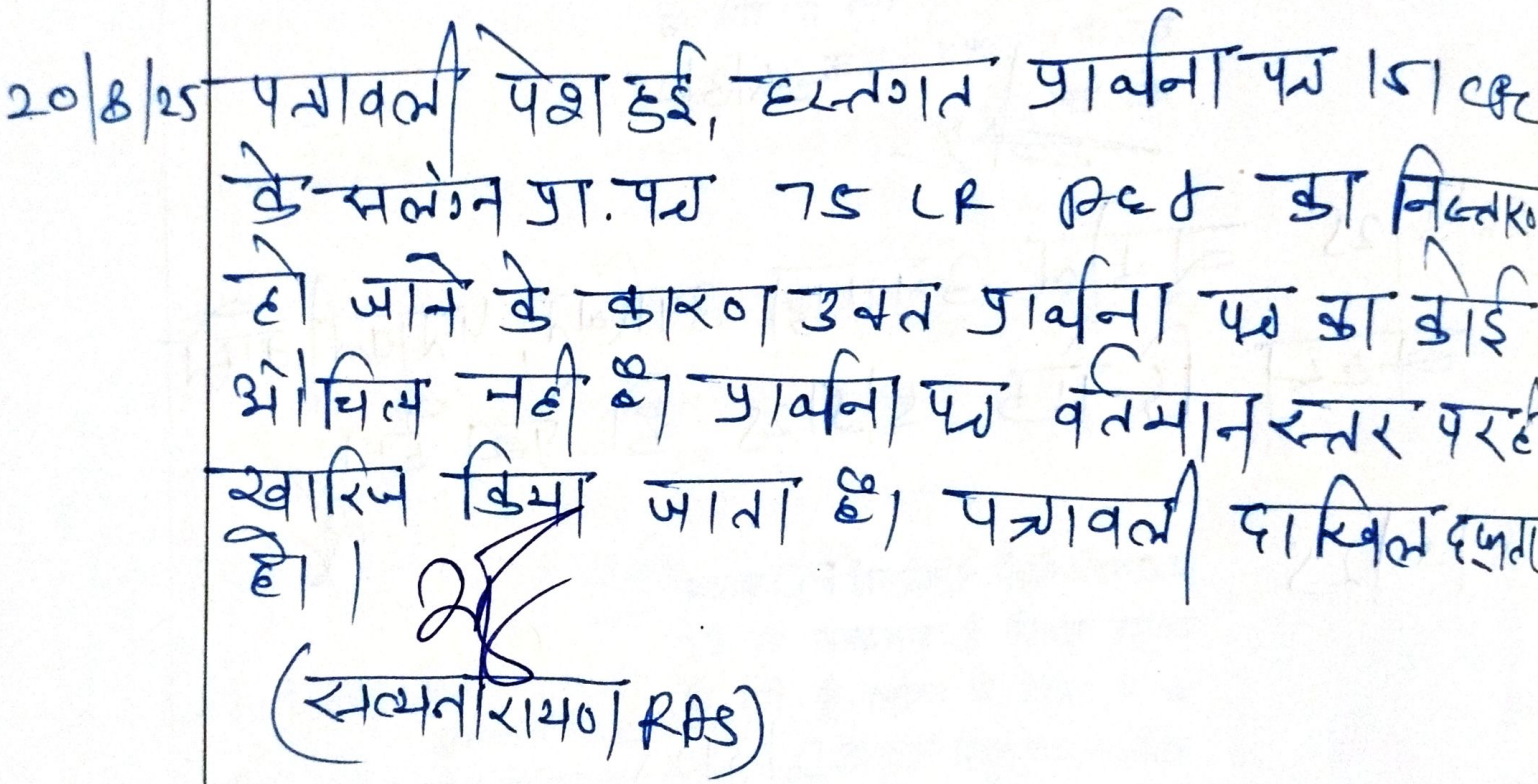 20/8/25 पत्रावली पेश हुई, हस्तगत प्रार्थना पत्र 151 CPC
के सलंग्न प्रा. पत्र 75 LR Act का निस्तारण
हो जाने के कारण उक्त प्रार्थना पत्र का कोई
औचित्य नही है। प्रार्थना पत्र वर्तमान स्तर पर ही
खारिज किया जाता है। पत्रावली दाखिल दफ्तर
हो।
(सत्यनारायण RAS)